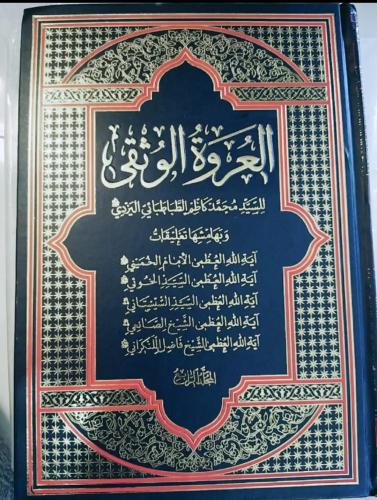 العروة الوثقى
للسيد محمد كاظم الطباطبائي اليزدي
وبهامشها تعليقات
آية الله العظمى الإمام الخميني
آية الله العظمى السيد الخوئي
آية الله العظمى السيد السيستاني
آية الله العظمى الشيخ الصانعي
آية الله العظمى الشيخ فاضل اللنكراني